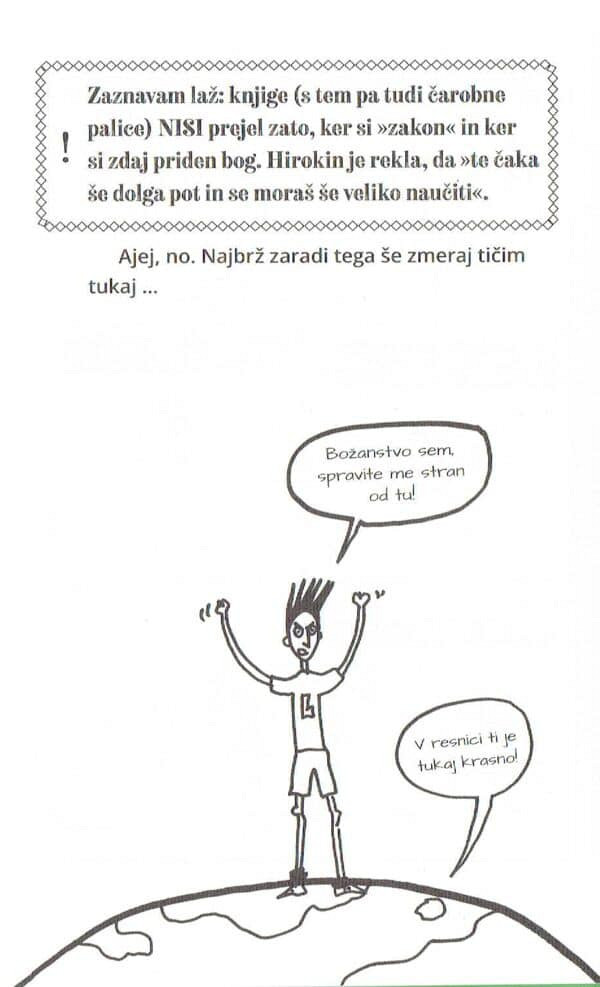 Zaznavam laž: knjige (s tem pa tudi čarobne
! palice) NISI prejel zato, ker si »zakon« in ker
si zdaj priden bog. Hirokin je rekla, da »te čaka
še dolga pot in se moraš še veliko naučiti«.
Ajej, no. Najbrž zaradi tega še zmeraj tičim
tukaj ...
Božanstvo sem,
spravite me stran
od tu!
V resnici ti je
tukaj krasno!